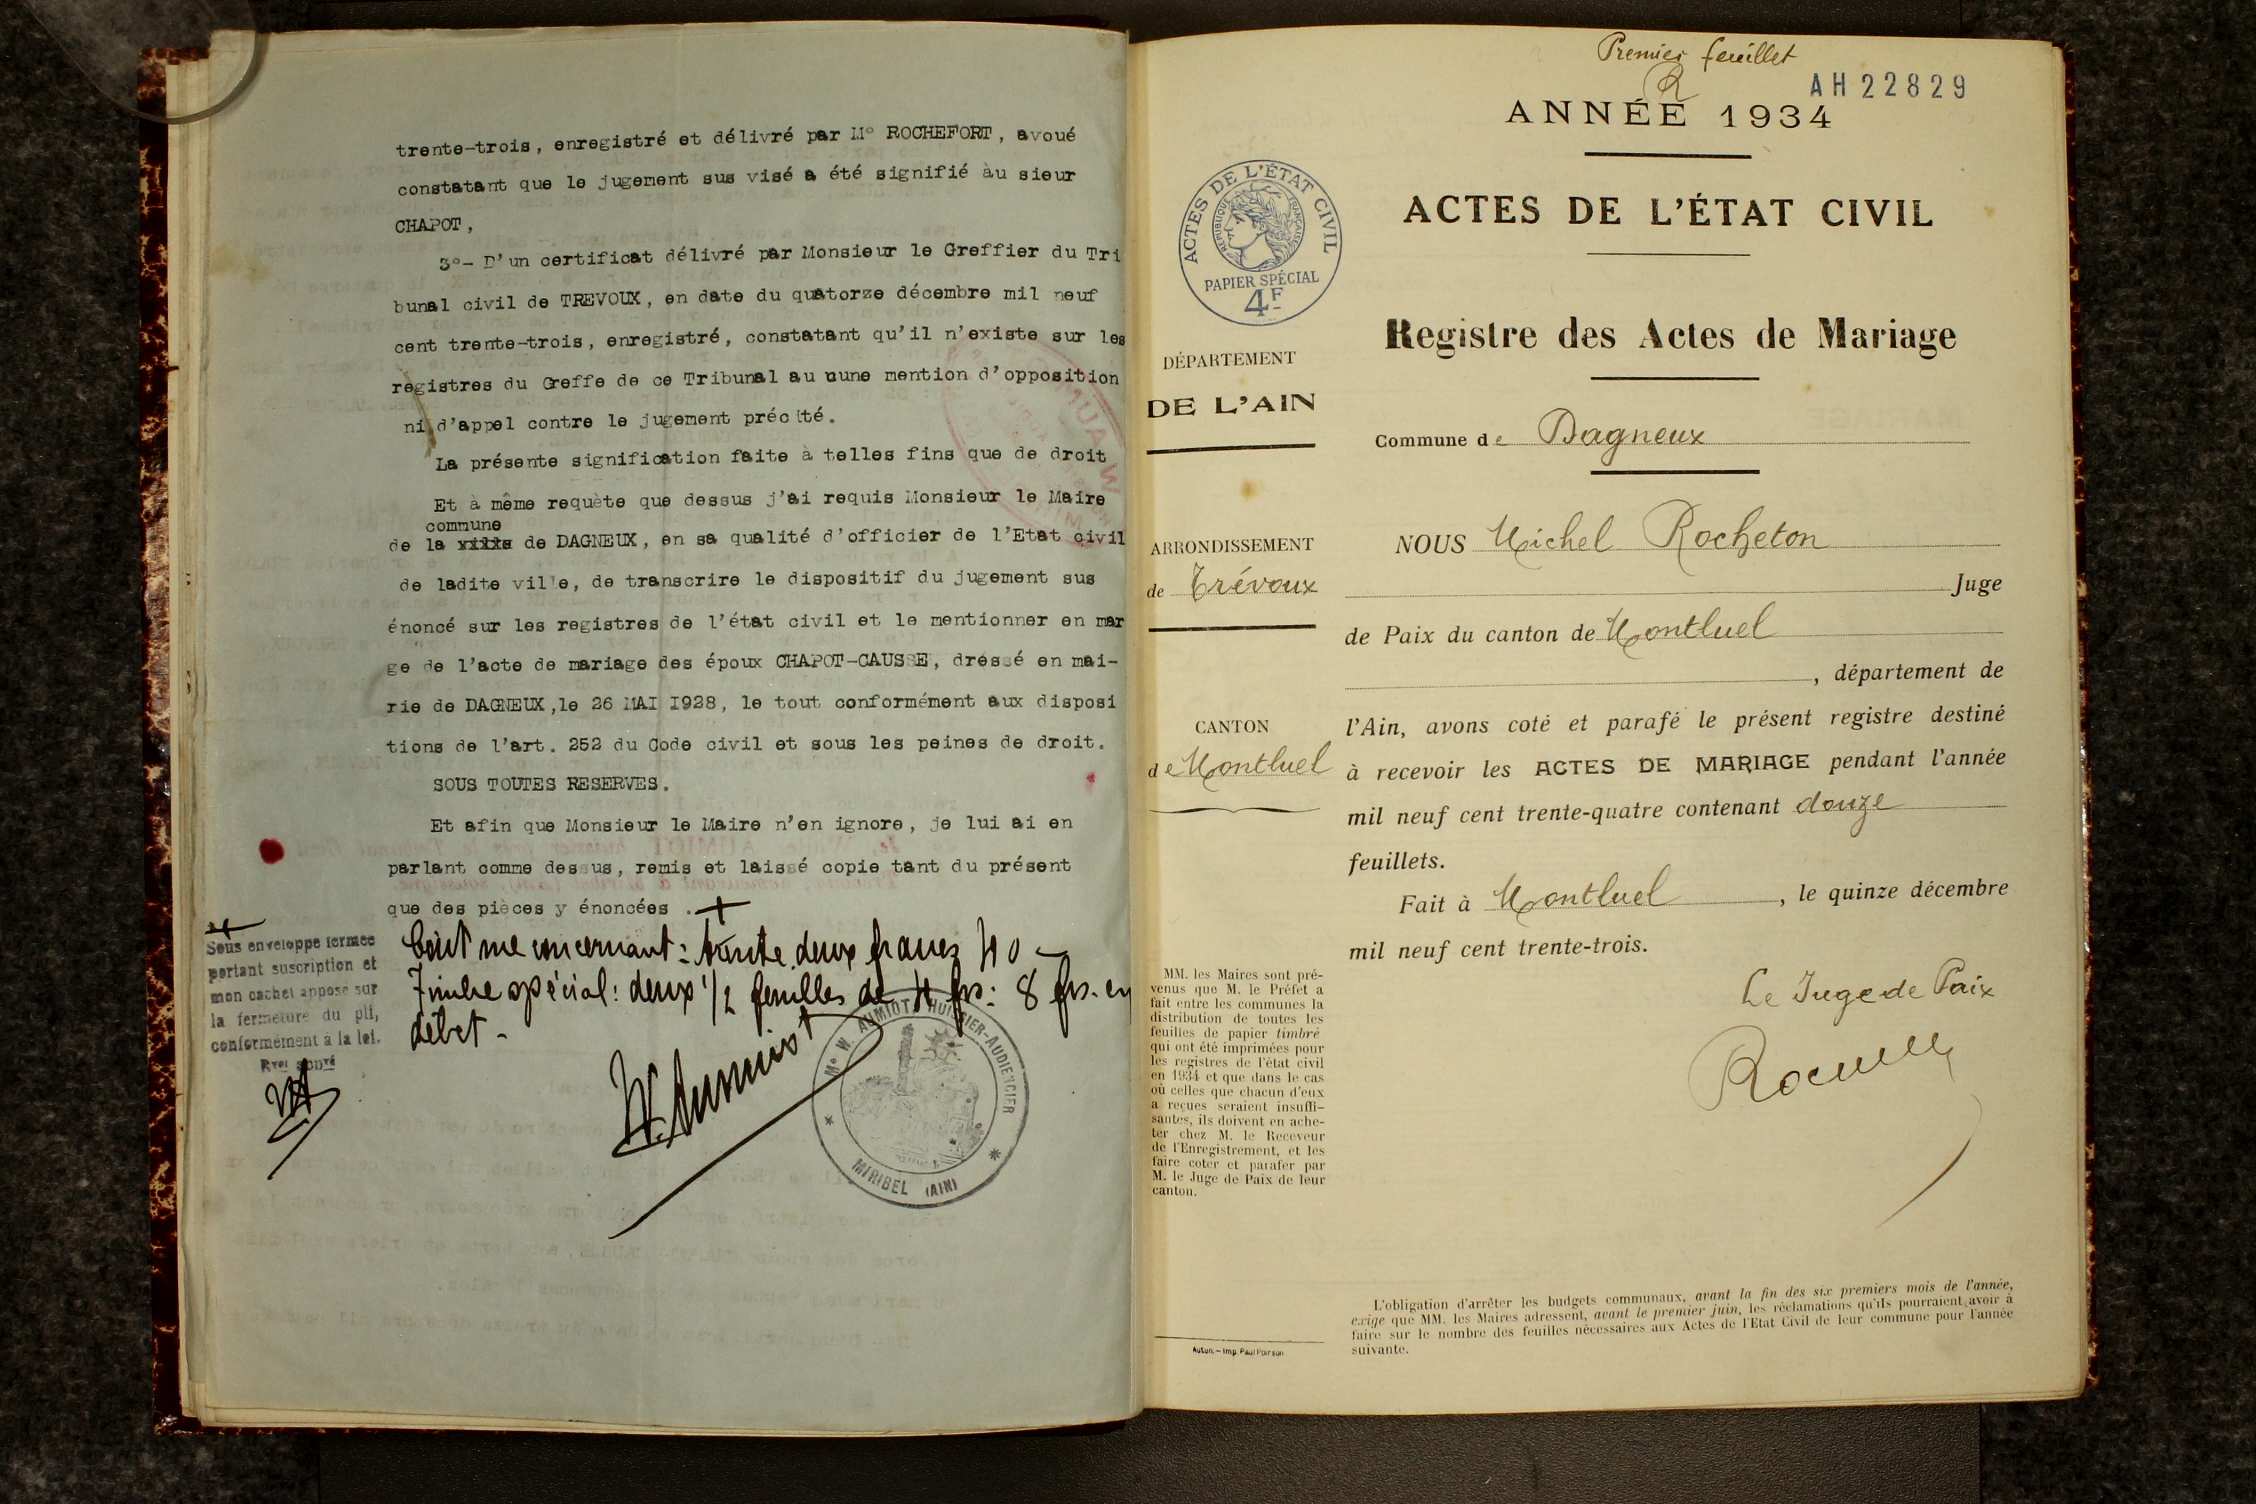 trente-trois, enregistré et délivré par M° ROCHEFORT, avoué
constatant que le jugement sus visé a été signifié àu sieur
CHAPOT,
3°- D'un certificat délivré par Monsieur le Greffier du Tri
bunal civil de TREVOUX, en date du quatorze décembre mil neuf
cent trente-trois, enregistré, constatant qu'il n'existe sur les
registres du Greffe de ce Tribunal au cune mention d'opposition
ni d'appel contre le jugement précité.
La présente signification faite à telles fins que de droit
Et à même requète que dessus j'ai requis Monsieur le Maire
commune
de la ville de DAGNEUX, en sa qualité d'officier de l'Etat civil
de ladite ville, de transcrire le dispositif du jugement sus
énoncé sur les registres de l'état civil et le mentionner en mar
ge de l'acte de mariage des époux CHAPOT-CAUSSE, dressé en mai-
rie de DAGNEUX, le 26 MAI I928, le tout conformément aux disposi
tions de l'art. 252 du Code civil et sous les peines de droit.
SOUS TOUTES RESERVES.
Et afin que Monsieur le Maire n'en ignore, je lui ai en
parlant comme dessus, remis et laissé copie tant du présent
que des pièces y énoncées .
Coût me concernant: trente deux francs 40 -
Timbre spécial: deux 1/2 feuilles de 4 frs: 8 frs. en
débet -
Sous enveloppe fermée
portant suscription et
mon cachet apposé sur
la fermeture du pli,
conformément à la loi.
W. Aumiot
Me W. AUMIOT HUISSIER-AUDIENCIER
MIRIBEL (AIN)
Premier feuillet
R
AH22829
ANNÉE 1934
ACTES DE L'ÉTAT CIVIL
RÉPUBLIQUE FRANÇAISE
PAPIER SPÉCIAL
4F
ACTES DE L'ÉTAT CIVIL
Registre des Actes de Mariage
Commune de Dagneux
DÉPARTEMENT
DE L'AIN
ARRONDISSEMENT
de Trévoux
CANTON
de Montluel
NOUS Michel Rocheton
Juge
de Paix du canton de Montluel
, département de
l'Ain, avons coté et parafé le présent registre destiné
à recevoir les ACTES DE MARIAGE pendant l'année
mil neuf cent trente-quatre contenant douze
feuillets.
Fait à Montluel, le quinze décembre
mil neuf cent trente-trois.
Le Juge de Paix
MM. les Maires sont pré-
venus que M. le Préfet a
fait entre les communes la
distribution de toutes les
feuilles de papier timbré
qui ont été imprimées pour
les registres de l'état civil
en 1934 et que dans le cas
où celles que chacun d'eux
a reçues seraient insuffi-
santes, ils doivent en ache-
ter chez M. le Receveur
de l'Enregistrement, et les
faire coter et parafer par
M. le Juge de Paix de leur
canton.
Autun. – Imp. Paul Poirson
L'obligation d'arrêter les budgets communaux, avant la fin des six premiers mois de l'année,
exige que MM. les Maires adressent, avant le premier juin, les réclamations qu'ils pourraient avoir à
faire sur le nombre des feuilles nécessaires aux Actes de l'Etat Civil de leur commune pour l'année
suivante.